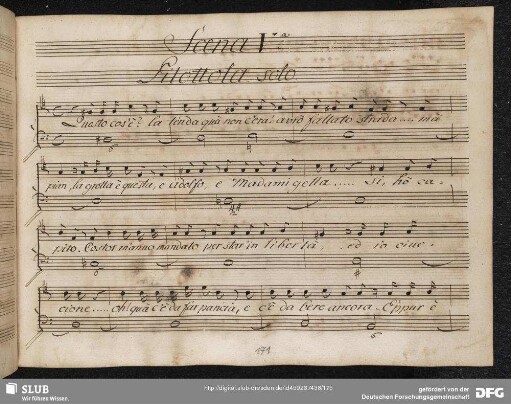 Scena V.ª
Pitottola solo
Questo cos'è? la tenda quà non c'era! avrò fallato strada.... mà
pian, la grotta è questa, e Adolfo, e Madamigella..... Sì, hò ca-
pito. Costor m'anno mandato per star in libertà.. ed io ciuc-
cione..... oh! quà c'è da far pancia, e c'è da bere ancora. Eppur è
171
SLUB
Wir führen Wissen.
gefördert von der
Deutschen Forschungsgemeinschaft
DFG